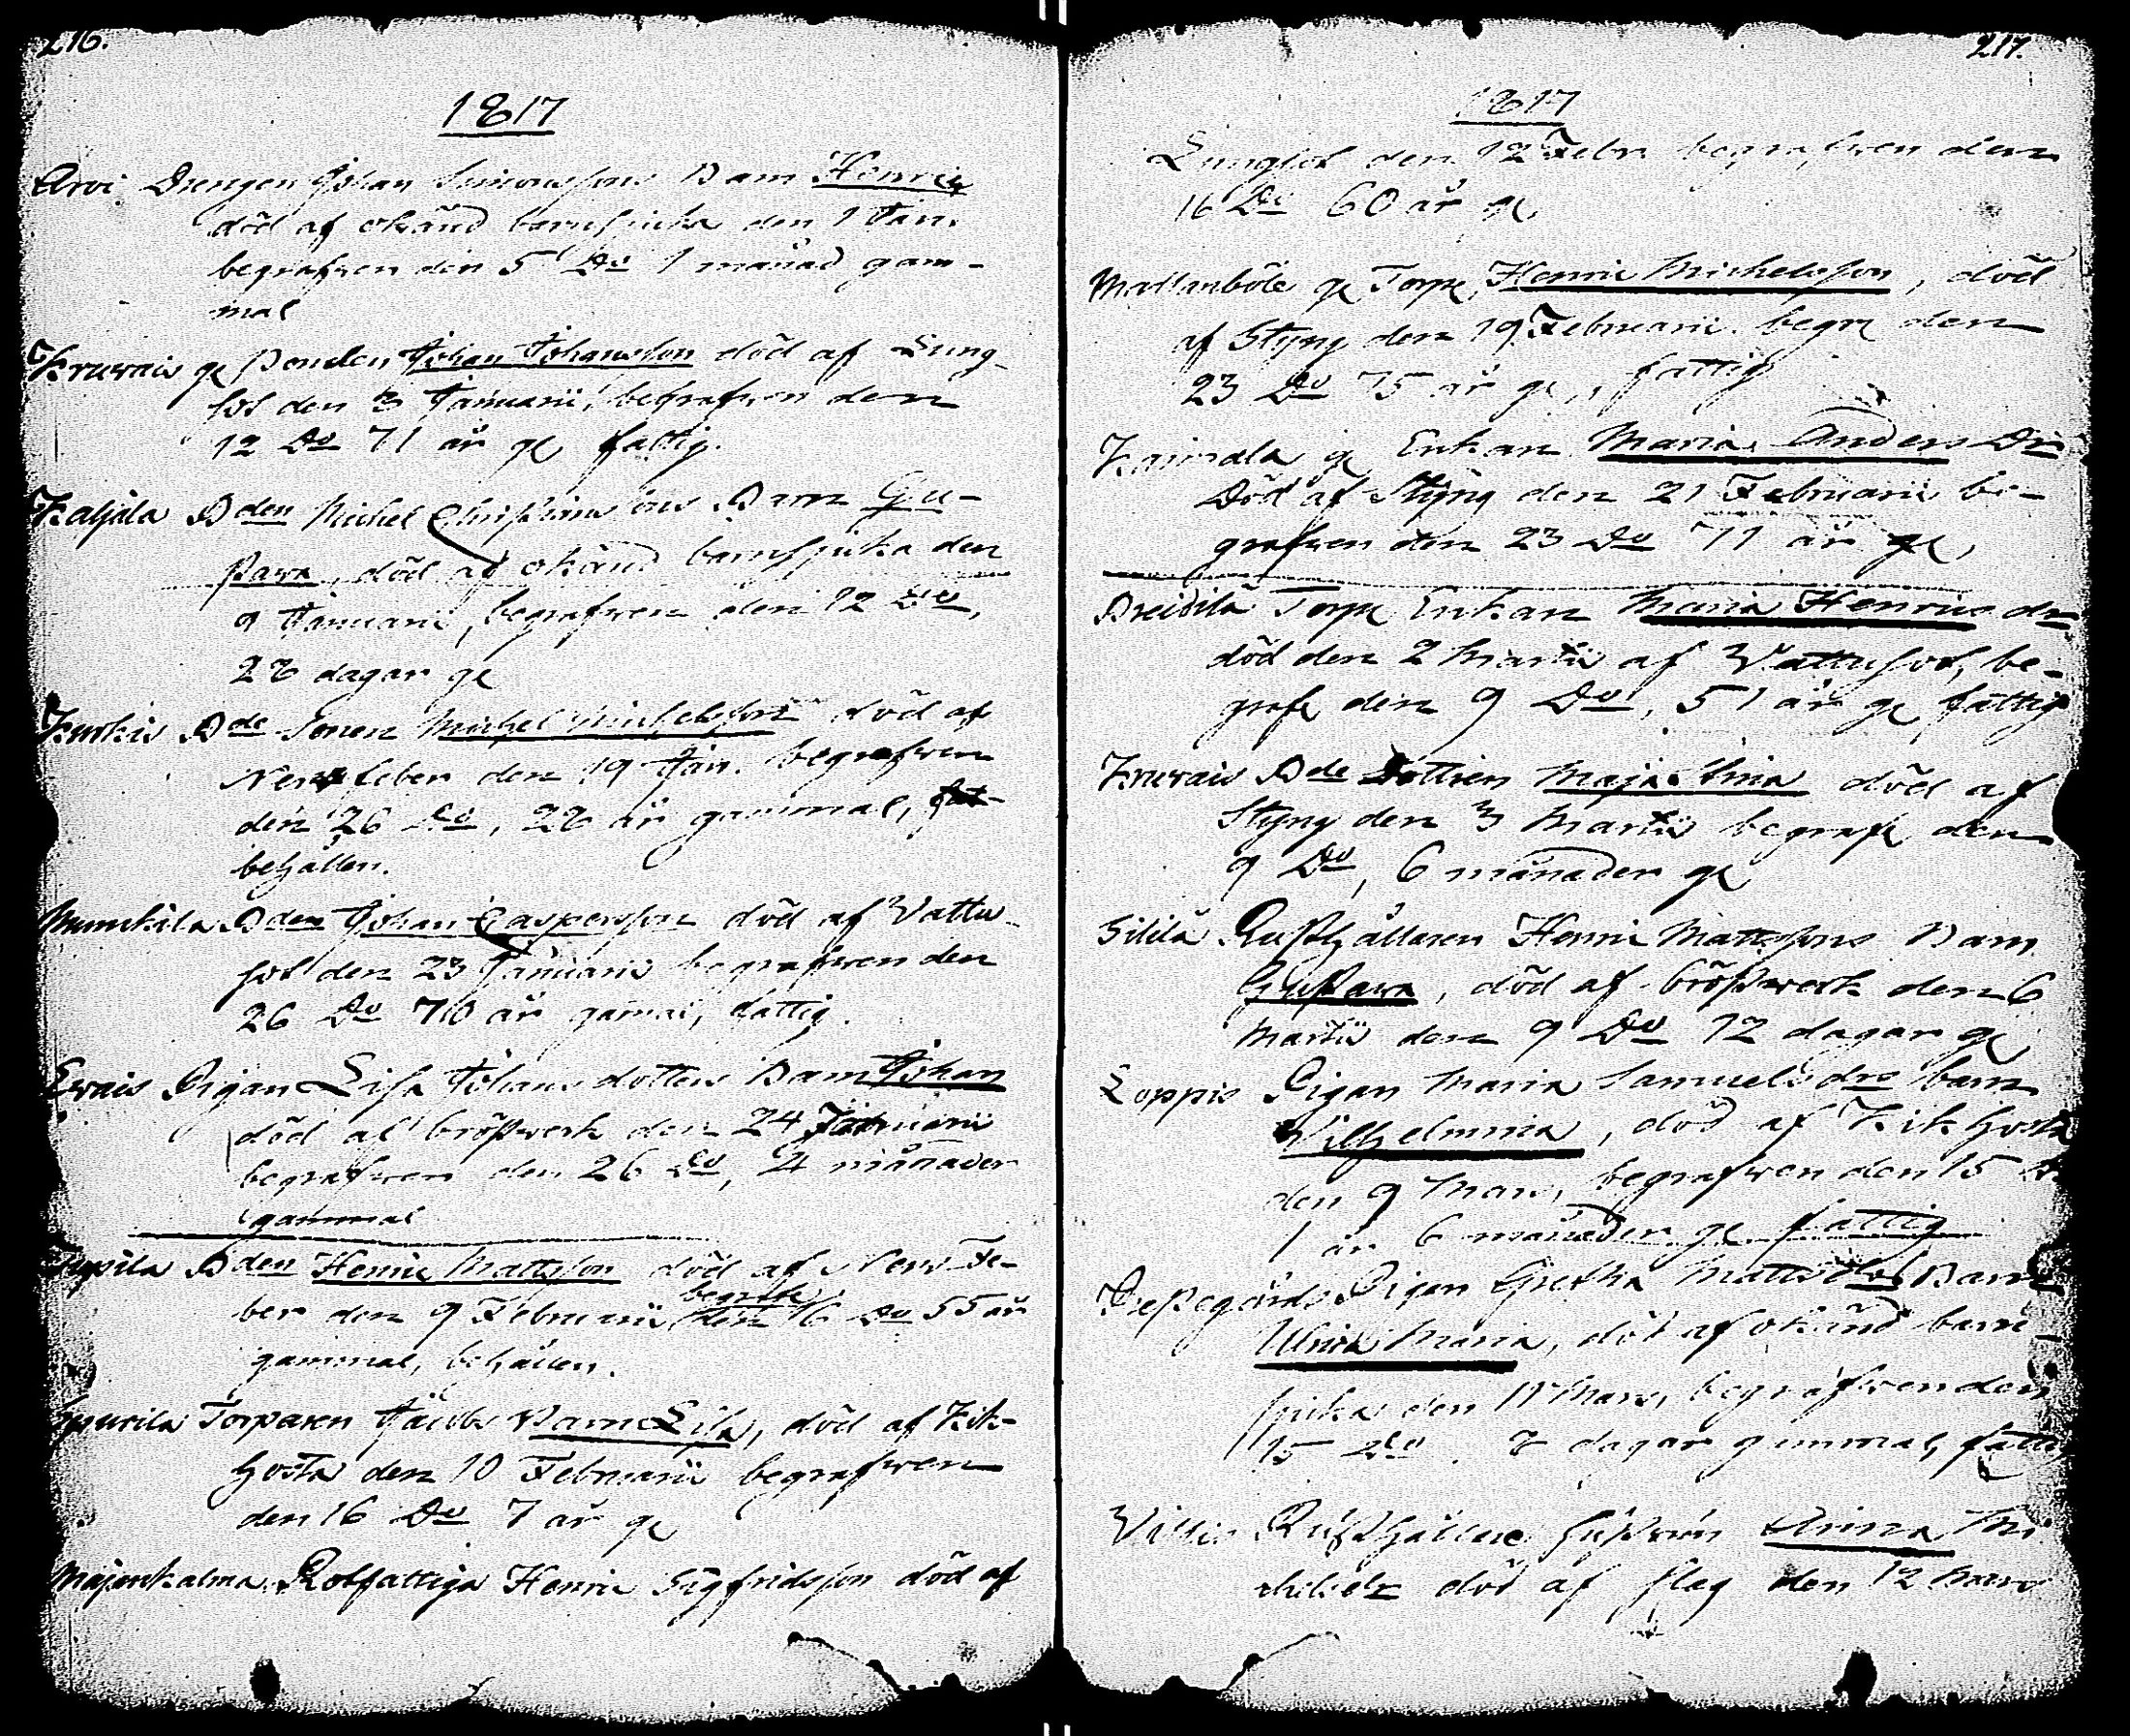 216.
1817
Arvi Drengen Johan Simonssons Barn Henric
död af okänd barnsjuka den 1 Jan.
begrafven den 5 Do 1 månad gam-
mal
Kruvais ge Bonden Johan Johansson död af Lung-
sot den 3 Januarii, begrafven den
12 Do 71 år ge fattig.
Kaljala Bden Michel Christiernssons Barn Gu-
stava, död af okänd barnsjuka den
9 Januarii, begrafven den 12 Do,
28 dagar ge
Kurkis Bde Sonen Michel Michelsson död af
Nervfeber den 19 Jan. begrafven
den 26 Do, 28 år gammal,
behållen.
Munkila Bden Johan Caspersson död af Vattu-
sot den 23 Januarii begrafven den
26 Do 70 år gamal, fattig.
Ervais Pigan Lisa Johans dotters Barn Johan
död af bröstverk den 24 Januarii
begrafven den 26 Do, 4 månader
gammal
Bden Henric Mattsson död af Nerv Fe-
ber den 9 Februarii begrafe den 16 Do 55 år
gammal, behållen.
Torparen Jacobs Barn Lisa, död af Kik-
hosta den 10 Februarii begrafven
den 16 Do 7 år ge
Majankalma Rotfattiga Henric Sigfridsson död af
217.
1817
Lungsot den 12 Febr. begrafven den
16 Do 60 år ge
Mallanböle ge Torpe Henric Michelsson, död
af Styng den 19 Februarii begr den
23 Do 75 år ge, fattig
Kairdala ge Enkan Maria Anders Dr
Död af Styng den 21 Februarii be-
grafven den 23 Do 71 år ge,
Torpe Enkan Maria Henrics dr
död den 2 Martii af Vattusot, be-
grafe den 9 Do, 51 år ge fattig
Kruvais Bde Dottren Maja Stina död af
Styng den 3 Martii begrafe den
9 Do, 6 månader ge
Sililä Rusthållaren Henric Mattssons Barn
Gustava, död af bröstverk den 6
Martii den 9 Do 12 dagar ge
Loppis Pigan Maria Samuels drs barn
Vilhelmina, död af Kikhosta
den 9 Mars, begrafven den 15
1 år 6 månader ge fattig
Prestegårds Pigan Gretha Matts drs Barn
Ulrica Maria, död af okänd barn-
sjuka den 11 Mars, begrafven den
15 Do 8 dagar gammal, fattig
Villis Rusthållare hustrun Anna Mi
chelsdr död af slag den 12 Mars